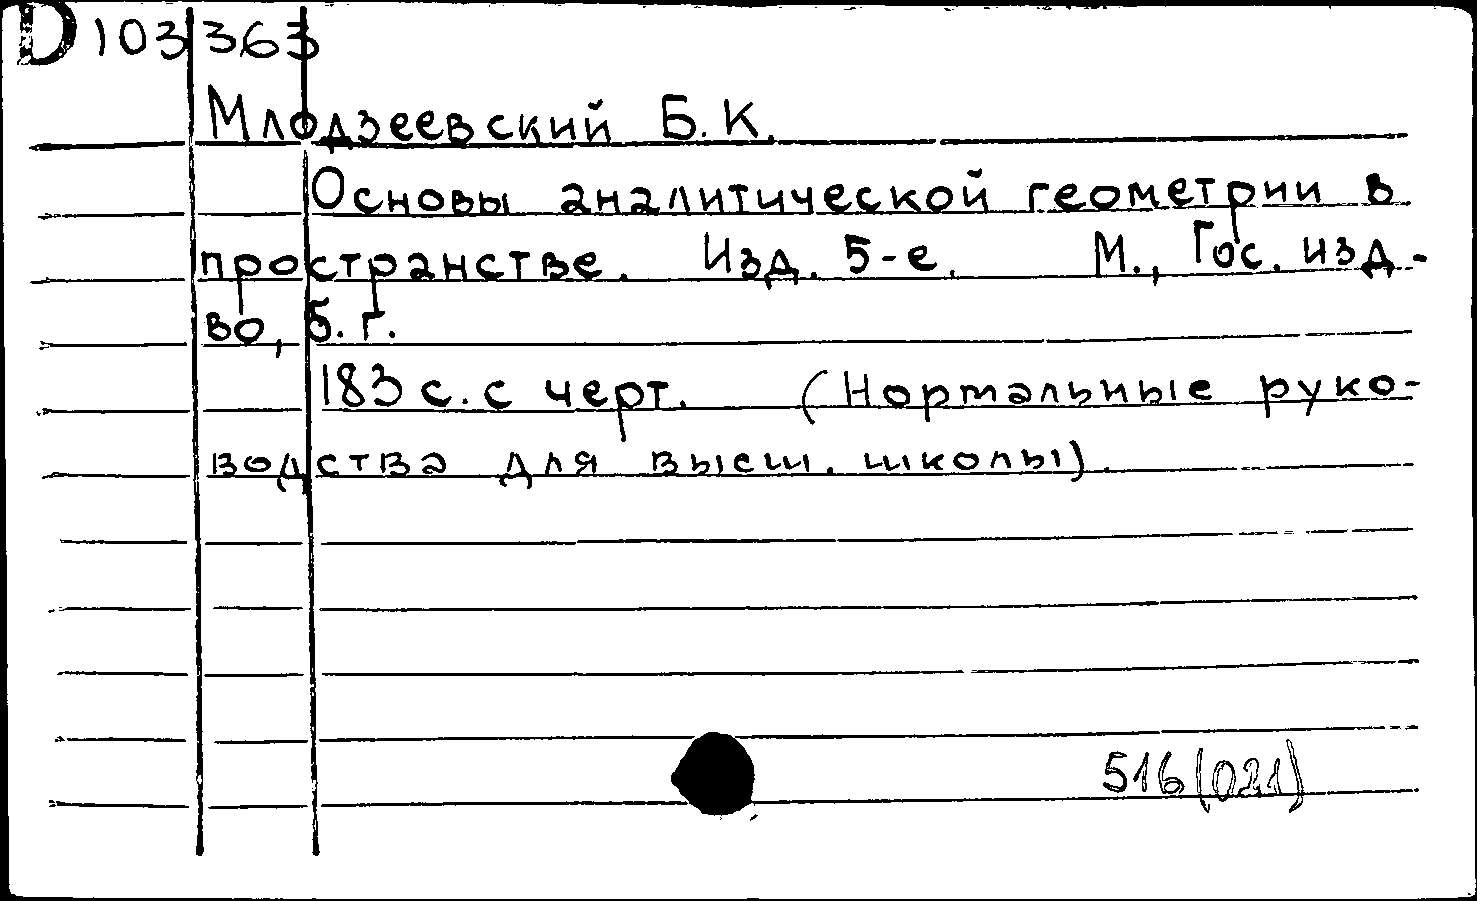 D 103 363
Млодзеевский Б. К.
Основы аналитической геометрии в
пространстве. Изд. 5-е. М., Гос. изд-
во, б. г.
183 с. с черт. (Нормальные руко-
водства для высш. школы).
516(021)